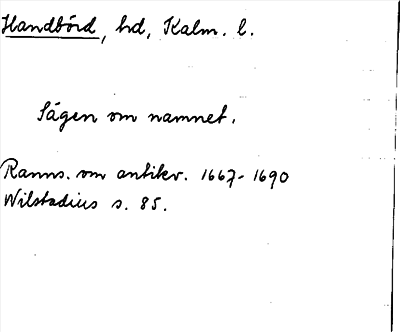 Handbörd, hd, Kalm. l.
Sägen om namnet.
Ranns. om antikv. 1667-1690
Wilstadius s. 85.